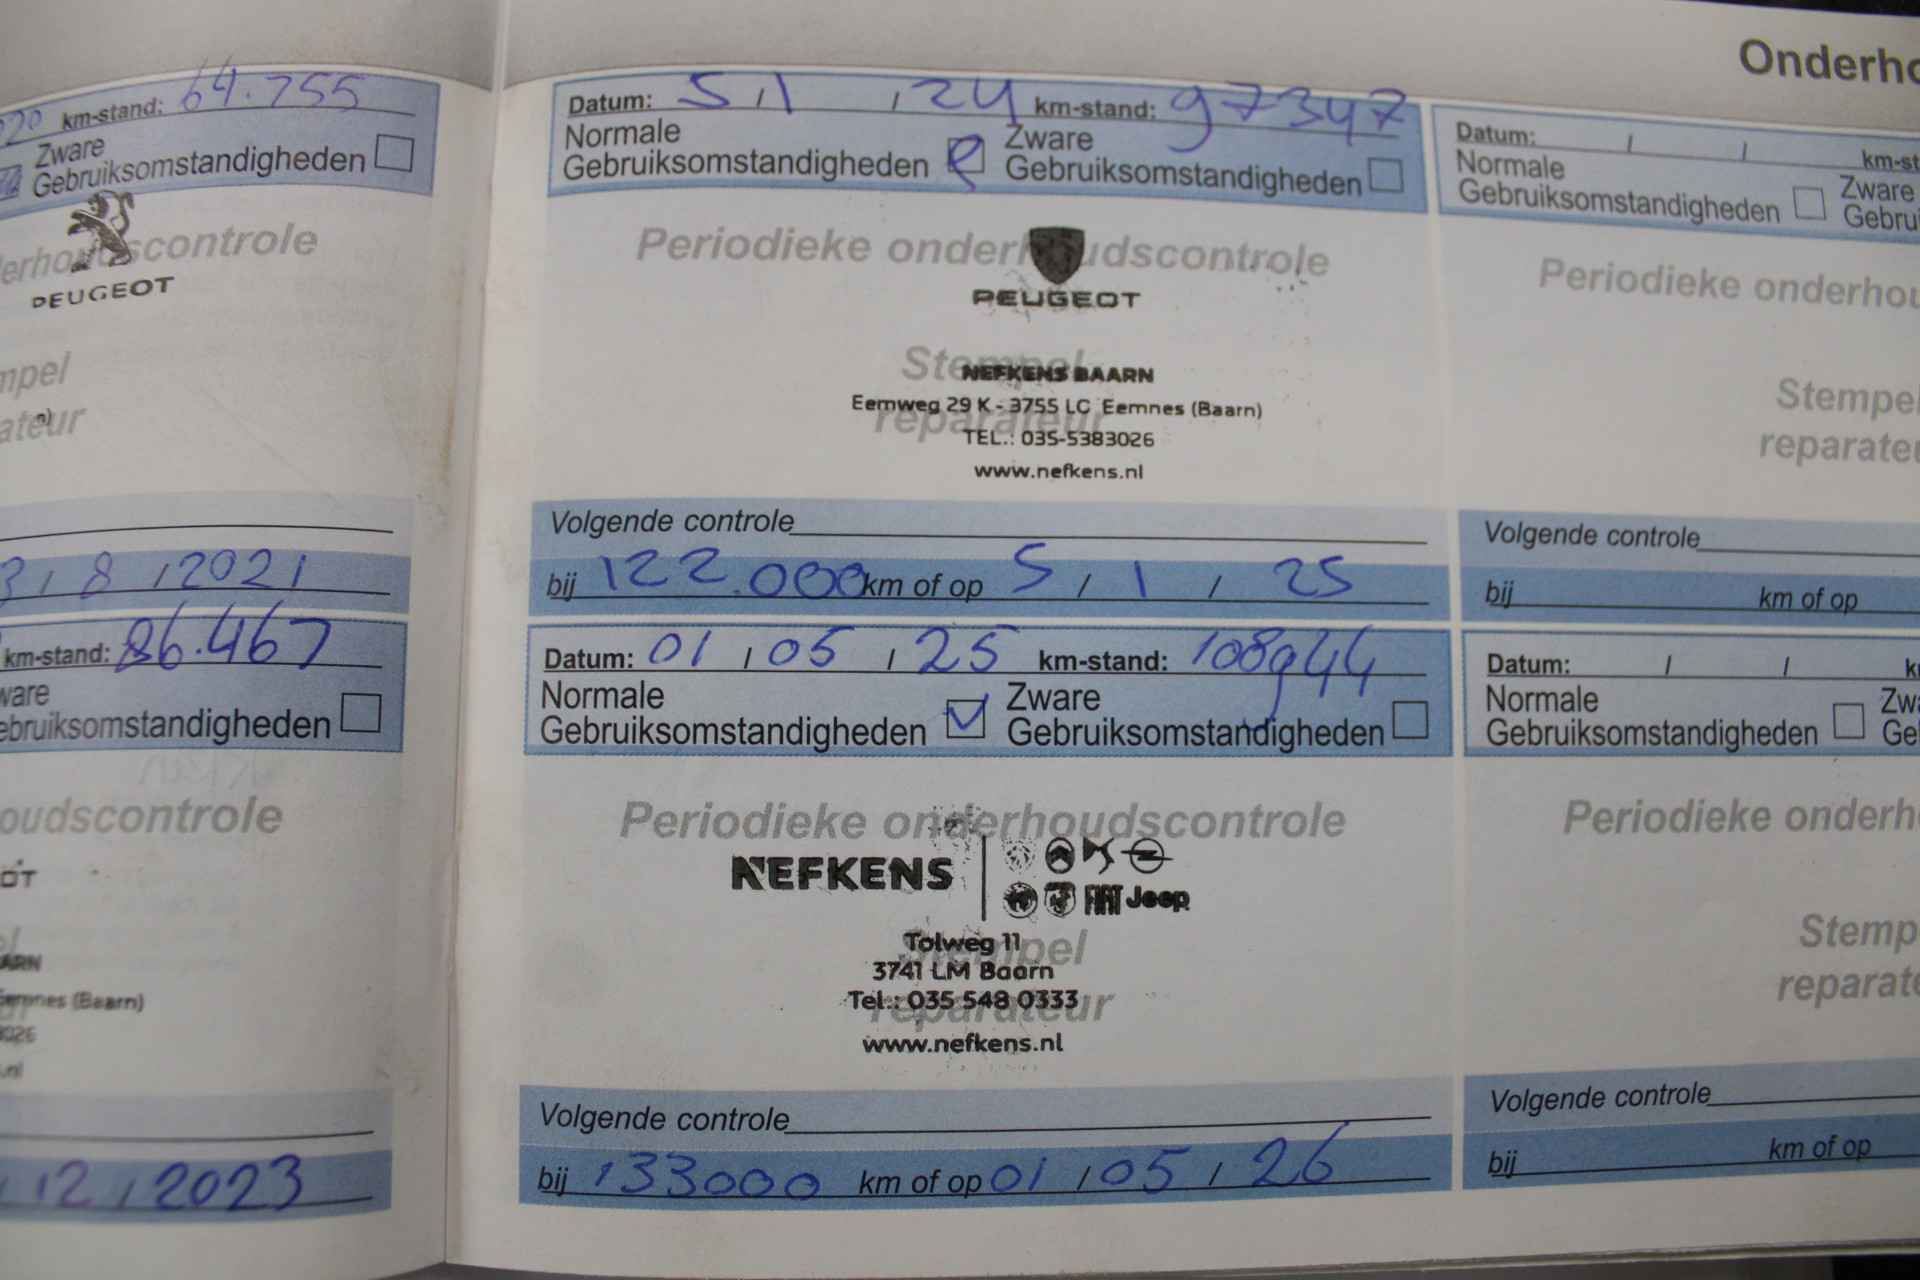 Onderho
20 km-stand: 64.755
Zware
Gebruiksomstandigheden
derhoudscontrole
PEUGEOT
mpel
ateur
3 / 8 / 2021
km-stand: 86.467
ware
ebruiksomstandigheden
oudscontrole
OT
ARN
Eemnes (Baarn)
.nl
12 / 2023
Datum: 5 / 1 / 24 km-stand: 97347
Normale Zware
Gebruiksomstandigheden Gebruiksomstandigheden
Periodieke onderhoudscontrole
PEUGEOT
Stempel
NEFKENS BAARN
Eemweg 29 K - 3755 LC Eemnes (Baarn)
reparateur
TEL.: 035-5383026
www.nefkens.nl
Volgende controle
bij 122.000 km of op 5 / 1 / 25
Datum: 01 / 05 / 25 km-stand: 108944
Normale Zware
Gebruiksomstandigheden Gebruiksomstandigheden
Periodieke onderhoudscontrole
NEFKENS
FIAT Jeep
Tolweg 11
Stempel
3741 LM Baarn
Tel.: 035 548 0333
reparateur
www.nefkens.nl
Volgende controle
bij 133000 km of op 01 / 05 / 26
Datum: / / km-st
Normale Zware
Gebruiksomstandigheden Gebru
Periodieke onderhou
Stempel
reparate
Volgende controle
bij km of op
Datum: / / k
Normale Zwa
Gebruiksomstandigheden Ge
Periodieke onderh
Stemp
reparate
Volgende controle
bij km of op